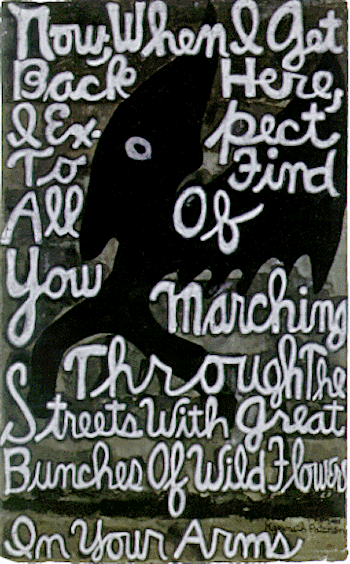 Now, When I Get
Back Here,
I Ex- pect
To Find
All Of
You Marching
Through The
Streets With Great
Bunches Of Wild Flowers
In Your Arms
Kenneth Patchen